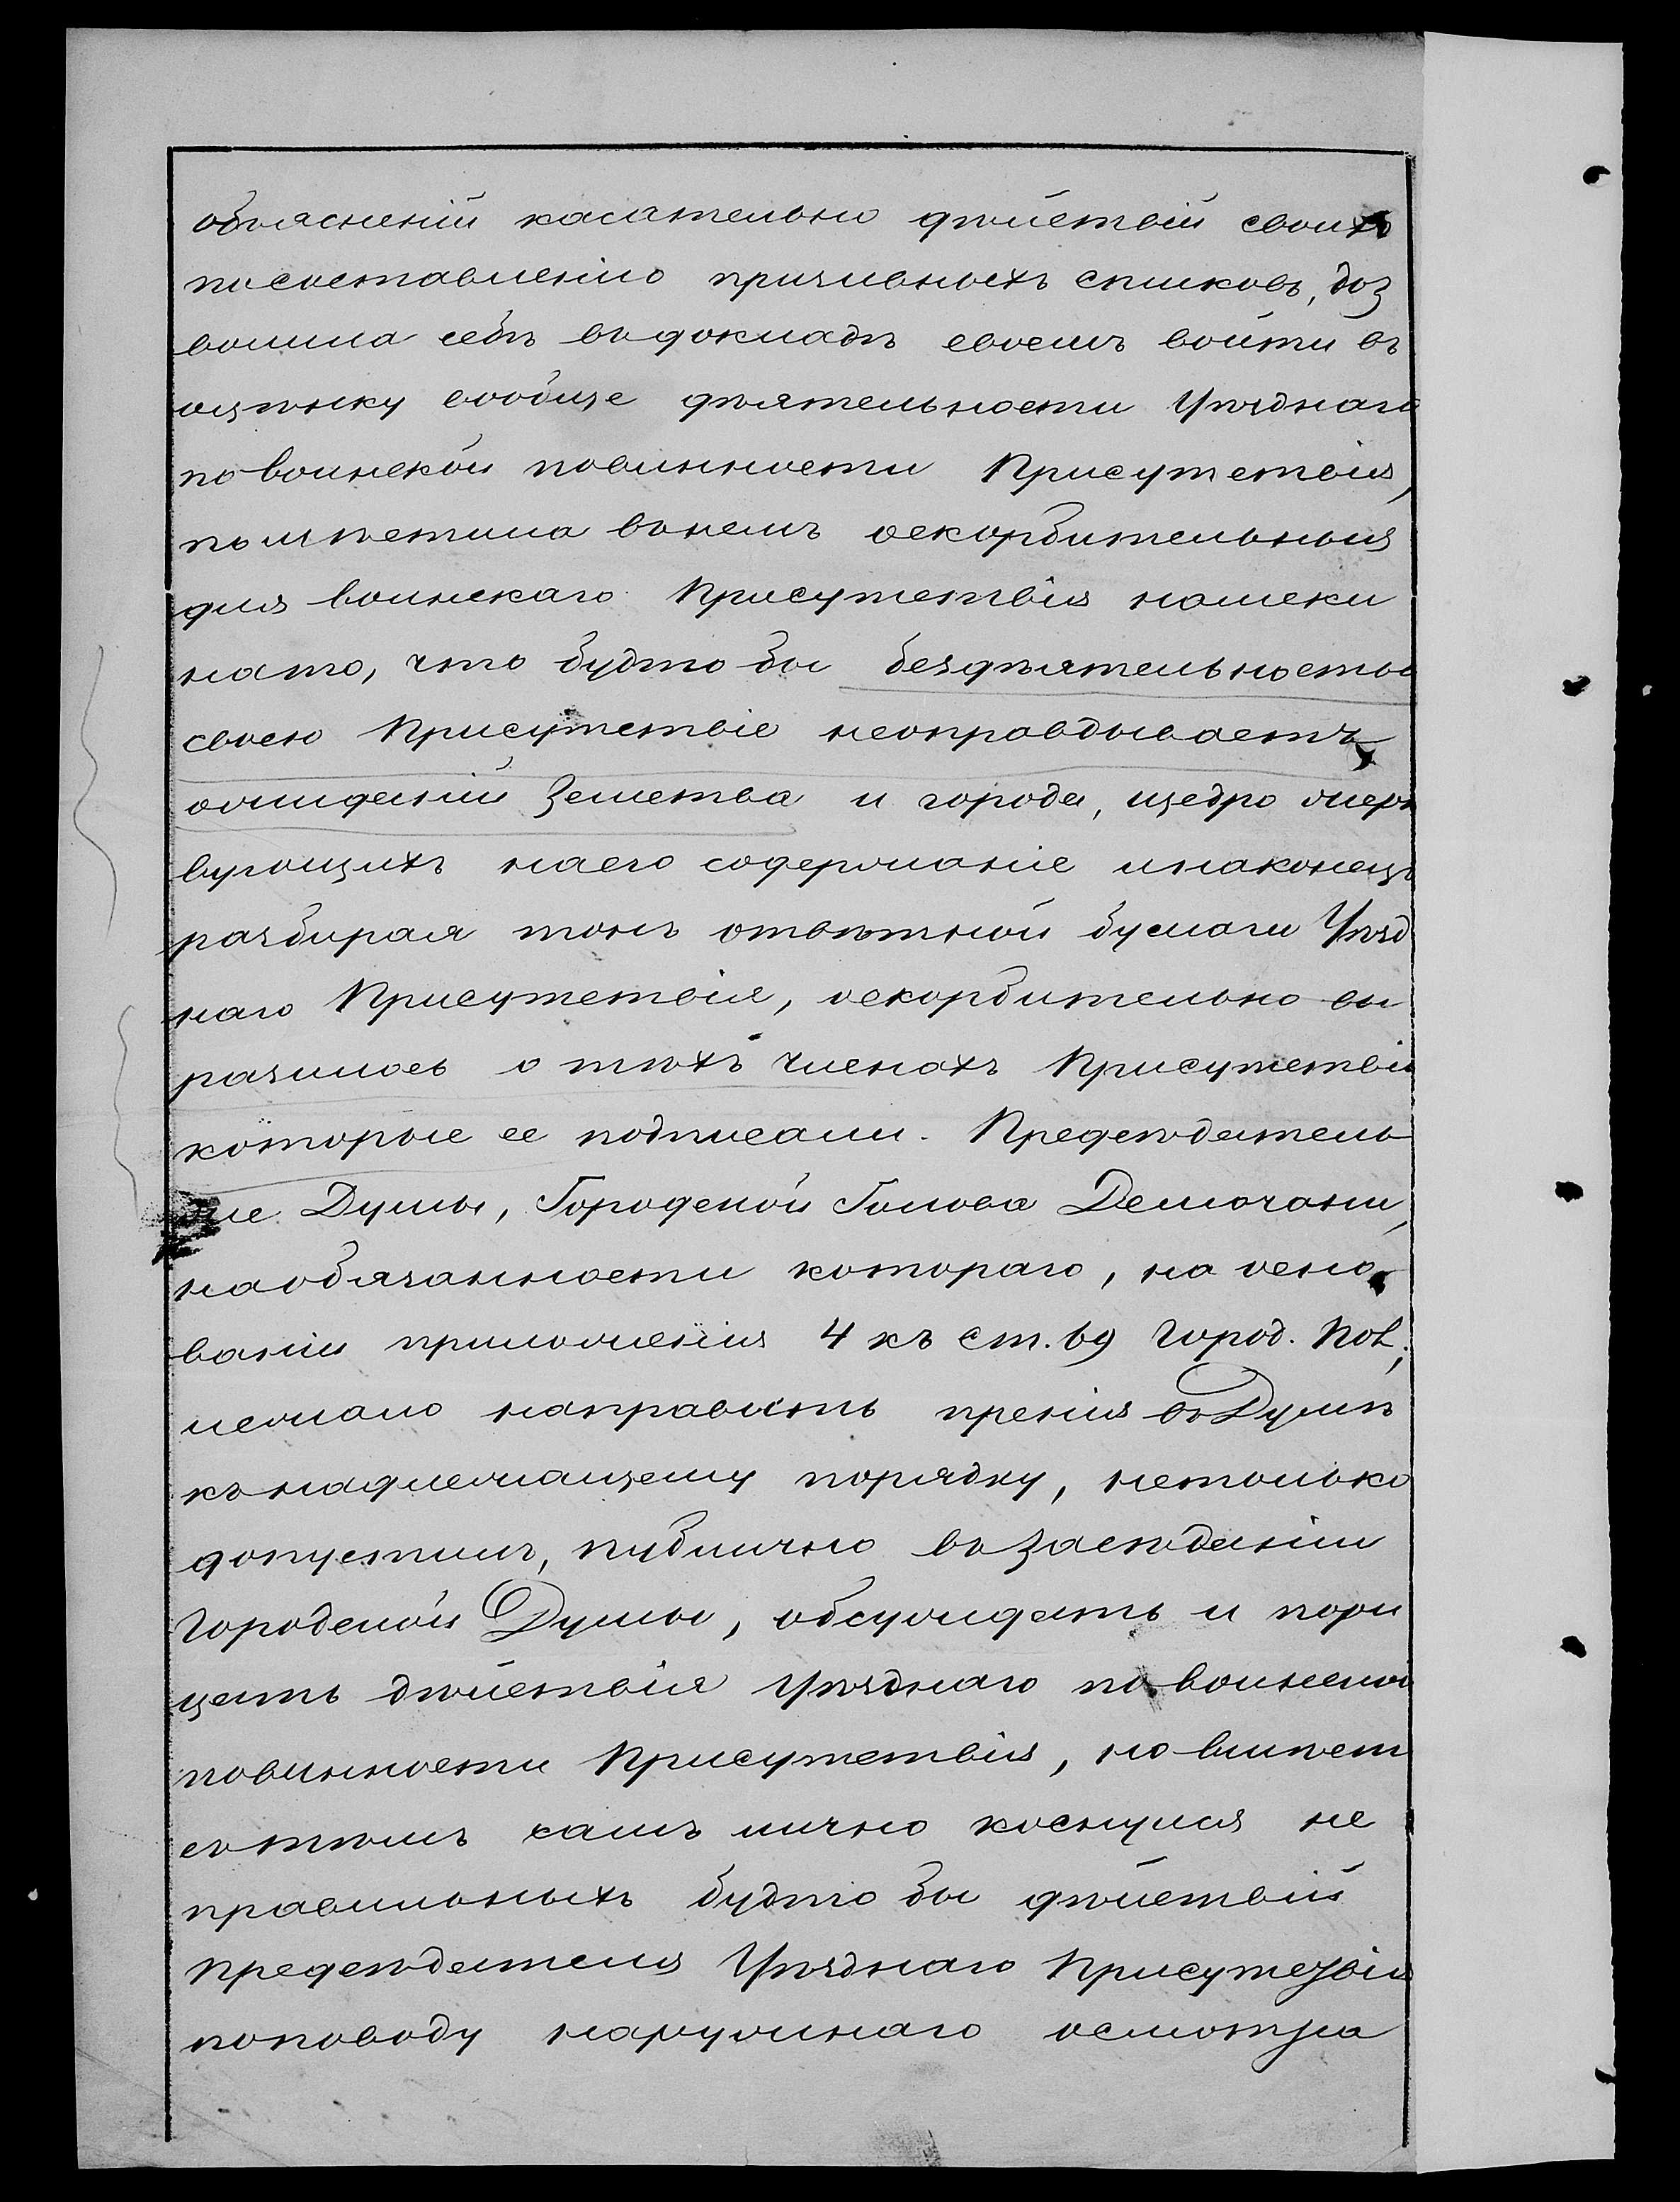 объясненій касательно дѣйствій своихъ
по составленію призывныхъ списковъ, доз
волила себѣ въ докладѣ своемъ войти въ
оцѣнку вообще дѣятельности Уѣзднаго
по воинской повинности Присутствія,
помѣстила въ немъ оскорбительныя
для воинскаго Присутствія намеки
на то, что будто бы бездѣятельностью
своею Присутствіе неоправдываетъ
ожиданій Земства и города, щедро жерт
вующихъ на его содержаніе и наконецъ
разбирая тонъ отвѣтной бумаги Уѣзд
наго Присутствія, оскорбительно вы
разилось о тѣхъ членахъ Присутствія
которые ее подписали. Предсѣдатель
же Думы, Городской Голова Демочани,
на обязанности котораго, на осно
ваніи приложенія 4 къ ст. 69 Город. Пол.,
лежало направить пренія въ Думѣ
къ надлежащему порядку, нетолько
допустилъ, публично въ засѣданіи
Городской Думы, обсуждать и пори
цать дѣйствія Уѣзднаго по воинской
повинности Присутствія, но вмѣст
съ тѣмъ самъ лично коснулся не
правильныхъ будто бы дѣйствій
Предсѣдателя Уѣзднаго Присутствія
по поводу наружнаго осмотра